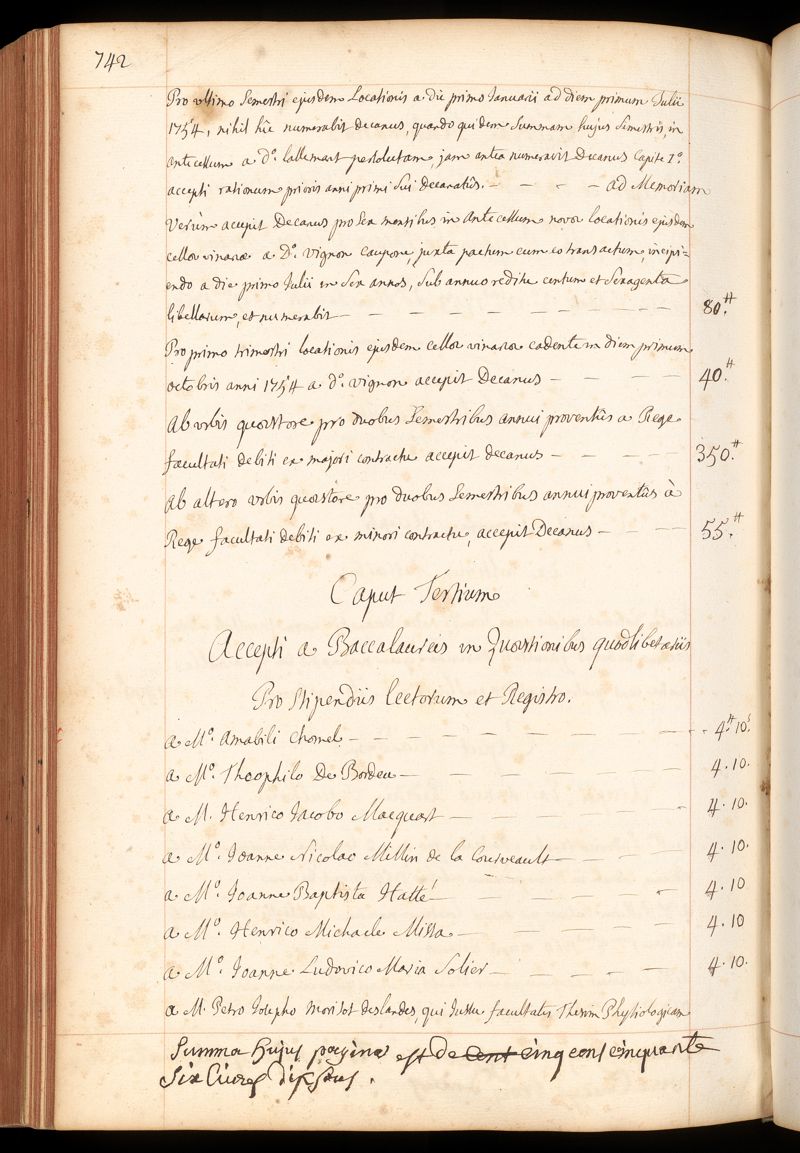 742
Pro ultimo Semestri ejusdem Locationis a die primo Januarii ad diem primum Julii
1754, nihil hic numerabit decanus, quandoquidem Summam hujus Semestris, in
antecessum a D°. lallemant persolutam, jam antea numeravit Decanus Capite I°.
accepti rationum prioris anni primi Sui decanatûs. — — - — ad Memoriam
Verùm accepit Decanus pro Sex mensibus in antecessum novæ locationis ejusdem
cellæ vinariæ a D°. Vignon caupone, juxta pactum cum eo transactum, incipi=
endo a die primo Julii in Sex annos, Sub annuo reditu centum et Sexaginta
libellarum, et numerabit — — — — — — — — — 80.₶
Pro primo trimestri locationis ejusdem cellæ vinariæ cadente in diem primum
octobris anni 1754 a d°. vignon accepit Decanus — — — — 40.₶
Ab urbis quæstore pro duobus Semestribus annui proventûs a Rege
facultati debiti ex majori contractu accepit decanus — — — — 350.₶
Ab altero urbis quæstore pro duobus Semestribus annui proventûs à
Rege facultati debiti ex minori contractu, accepit Decanus — — — 55.₶
Caput Tertium
Accepti a Baccalaureis in Quæstionibus quodlibetariis
Pro Stipendiis lectorum et Registro.
a M°. Amabili Chomel — — — — — — — — 4.₶ 10.s
a M°. Theophilo De Bordeu — — — — — — 4. 10.
a M. Henrico Jacobo Macquart — — — — - 4. 10.
a M°. Joanne Nicolao Millin de la Courveault — — — — 4. 10.
a M°. Joanne Baptista Hatté — — — - 4. 10
a M°. Henrico Michaele Missa — — — — — 4. 10
a M°. Joanne Ludovico Maria Solier — — — — — 4. 10.
a M. Petro Josepho Morisot deslandes, qui Jussu facultatis Thesim Physiologicam
Summa hujus paginæ est de cent cinq cens cinquante
Six Livres dix sous.